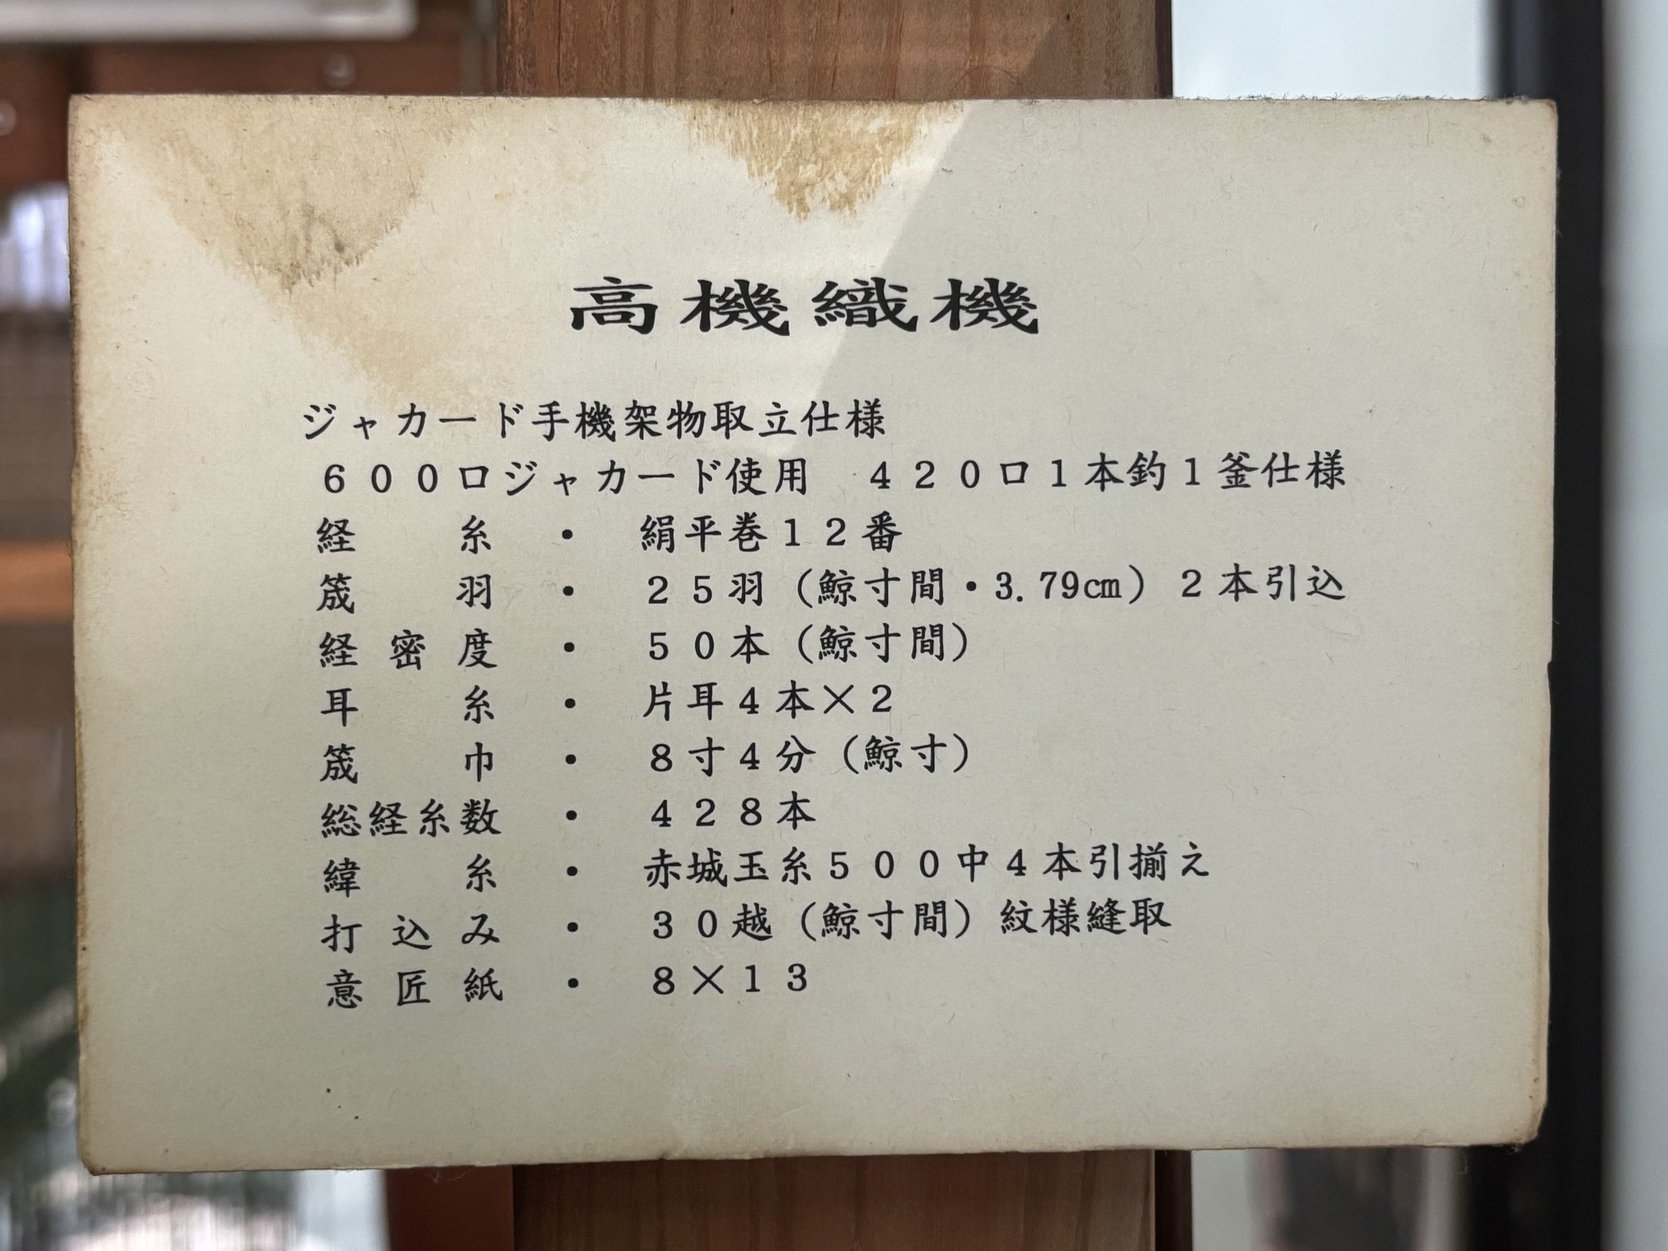 高機織機
ジャカード手機架物取立仕様
６００口ジャカード使用　４２０口１本釣１釜仕様
経　　糸　・　絹平巻１２番
筬　　羽　・　２５羽（鯨寸間・3.79㎝）２本引込
経 密 度　・　５０本（鯨寸間）
耳　　糸　・　片耳４本×２
筬　　巾　・　８寸４分（鯨寸）
総経糸数　・　４２８本
緯　　糸　・　赤城玉糸５００中４本引揃え
打 込 み　・　３０越（鯨寸間）紋様縫取
意 匠 紙　・　８×１３